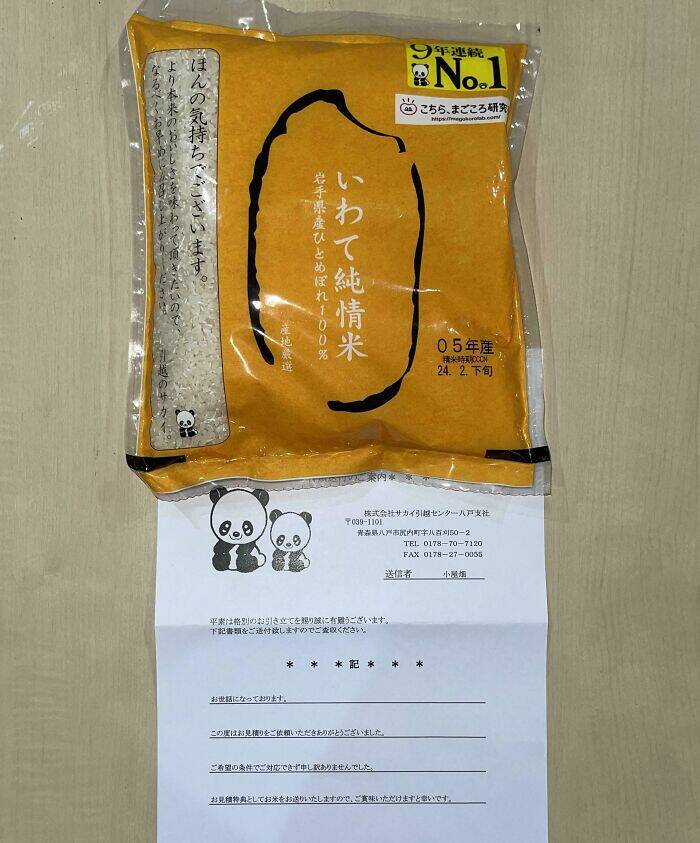 9年連続
No.1
こちら、まごころ研究
https://magokorolab.com/
ほんの気持ちでございます。
より本来のおいしさを味わって頂きたいので、
なるべくお早めにお召し上がりくださいませ
引越のサカイ。
いわて純情米
岩手県産ひとめぼれ100%
産地厳選
05年産
精米時期CCCN
24. 2. 下旬
ご案内* * *
株式会社サカイ引越センター八戸支社
〒039-1101
青森県八戸市尻内町字八百刈50-2
TEL 0178-70-7120
FAX 0178-27-0055
送信者 小屋畑
平素は格別のお引き立てを賜り誠に有難うございます。
下記書類をご送付致しますのでご査収ください。
* * * 記 * * *
お世話になっております。
この度はお見積りをご依頼いただきありがとうございました。
ご希望の条件でご対応できず申し訳ありませんでした。
お見積特典としてお米をお送りいたしますので、ご賞味いただけますと幸いです。